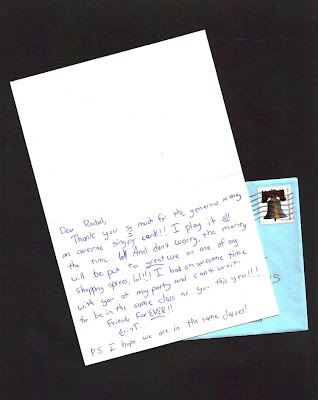 Dear Rachel,
Thank you so much for the generous money
an awesome singing card!!! I play it all
the time lol! And don't worry, the money
will be put to great use on one of my
shopping sprees, lol!!! I had an awesome time
with you at my party and can't wait
to be in the same class as you this year!!!
Friends For EVER!!
Erin T.
P.S. I hope we are in the same classes!